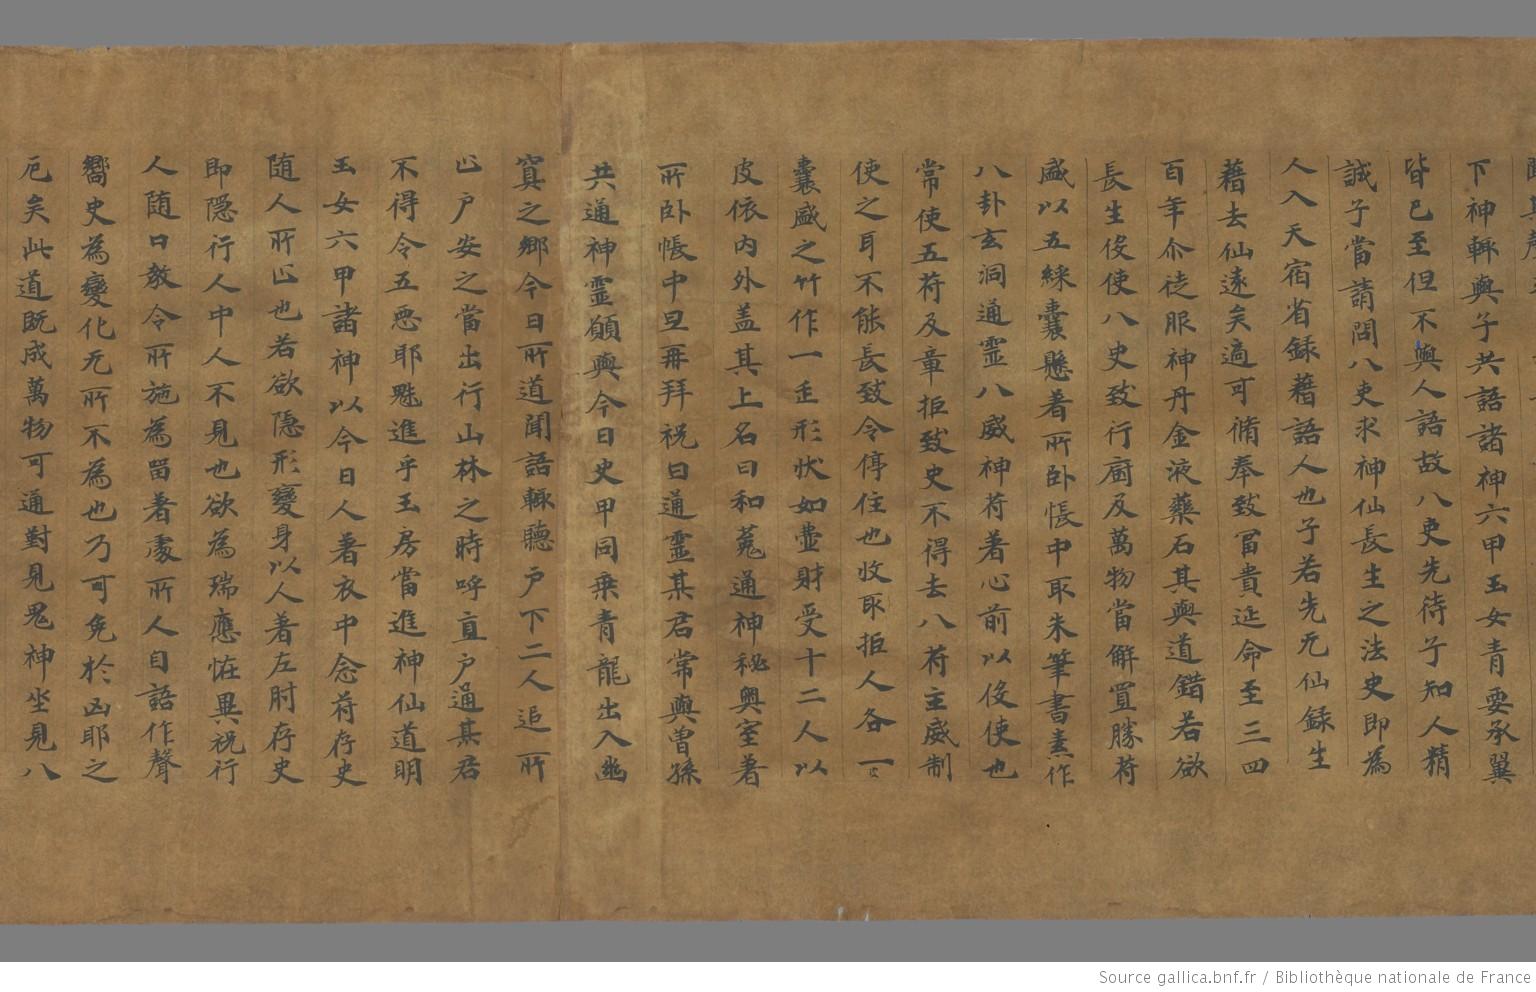 下神輙與子共語諸神六甲玉女青要承翼
皆已至但不與人語故八吏先待子知人精
誠子當請問八吏求神仙長生之法史即為
人入天宿省録藉語人也子若先无仙録生
藉去仙遠矣適可脩奉致冨貴延命至三四
百年尒徒服神丹金液藥石其與道錯若欲
長生役使八史致行廚及萬物當解置勝苻
盛以五綵囊懸著所卧悵中取朱筆書素作
八卦玄洞通靈八威神苻著心前以役使也
常使五苻及章拒致史不得去八苻主威制
使之耳不能長致令停住也收取拒人各一
囊盛之竹作一 形狀如壷財受十二人以
皮依内外盖其上名曰和菟通神秘與室著
所卧帳中旦再拜祝曰通靈某君常與曽孫
共通神靈願與今日史甲同乗青龍出入幽
冥之鄉今日所道聞語輙聽户下二人追所
止户安之當出行山林之時呼直户通某君
不得令五惡耶魅進乎玉房當進神仙道明
玉女六甲諸神以今日人著衣中念苻存史
随人所止也若欲隠形變身以人著左肘存史
即隠行人中人不見也欲為瑞應恠異祝行
人随口教令所施為畱著處所人自語作聲
嚮史為變化无所不為也乃可免於凶耶之
厄矣此道既成萬物可通對見鬼神坐見八